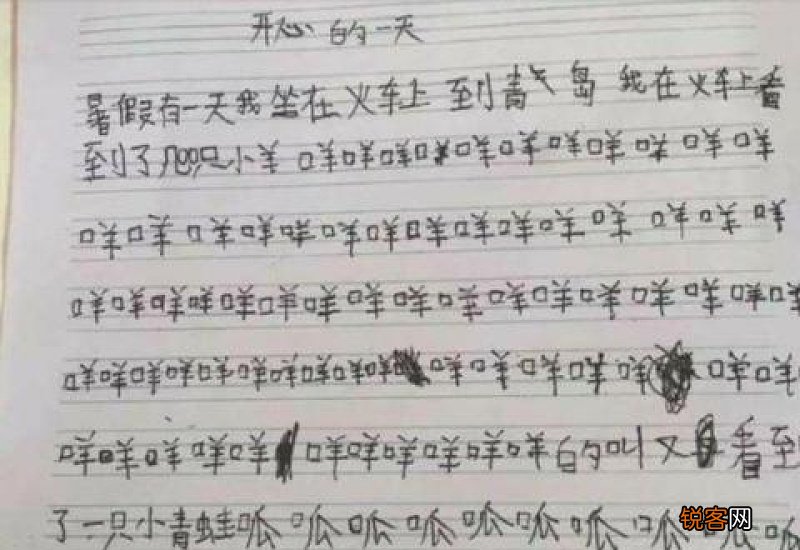 开心的一天
暑假有一天我坐在火车上到青岛我在火车上看
到了几只小羊咩咩咩咩咩咩咩咩咩咩咩
咩咩咩咩咩咩咩咩咩咩咩咩咩咩咩
咩咩咩咩咩咩咩咩咩咩咩咩咩咩咩咩咩
咩咩咩咩咩咩咩咩咩咩咩咩咩咩咩咩咩
咩咩咩咩咩咩咩咩咩咩咩的叫又看到
了一只小青蛙呱呱呱呱呱呱呱呱呱呱
锐客网